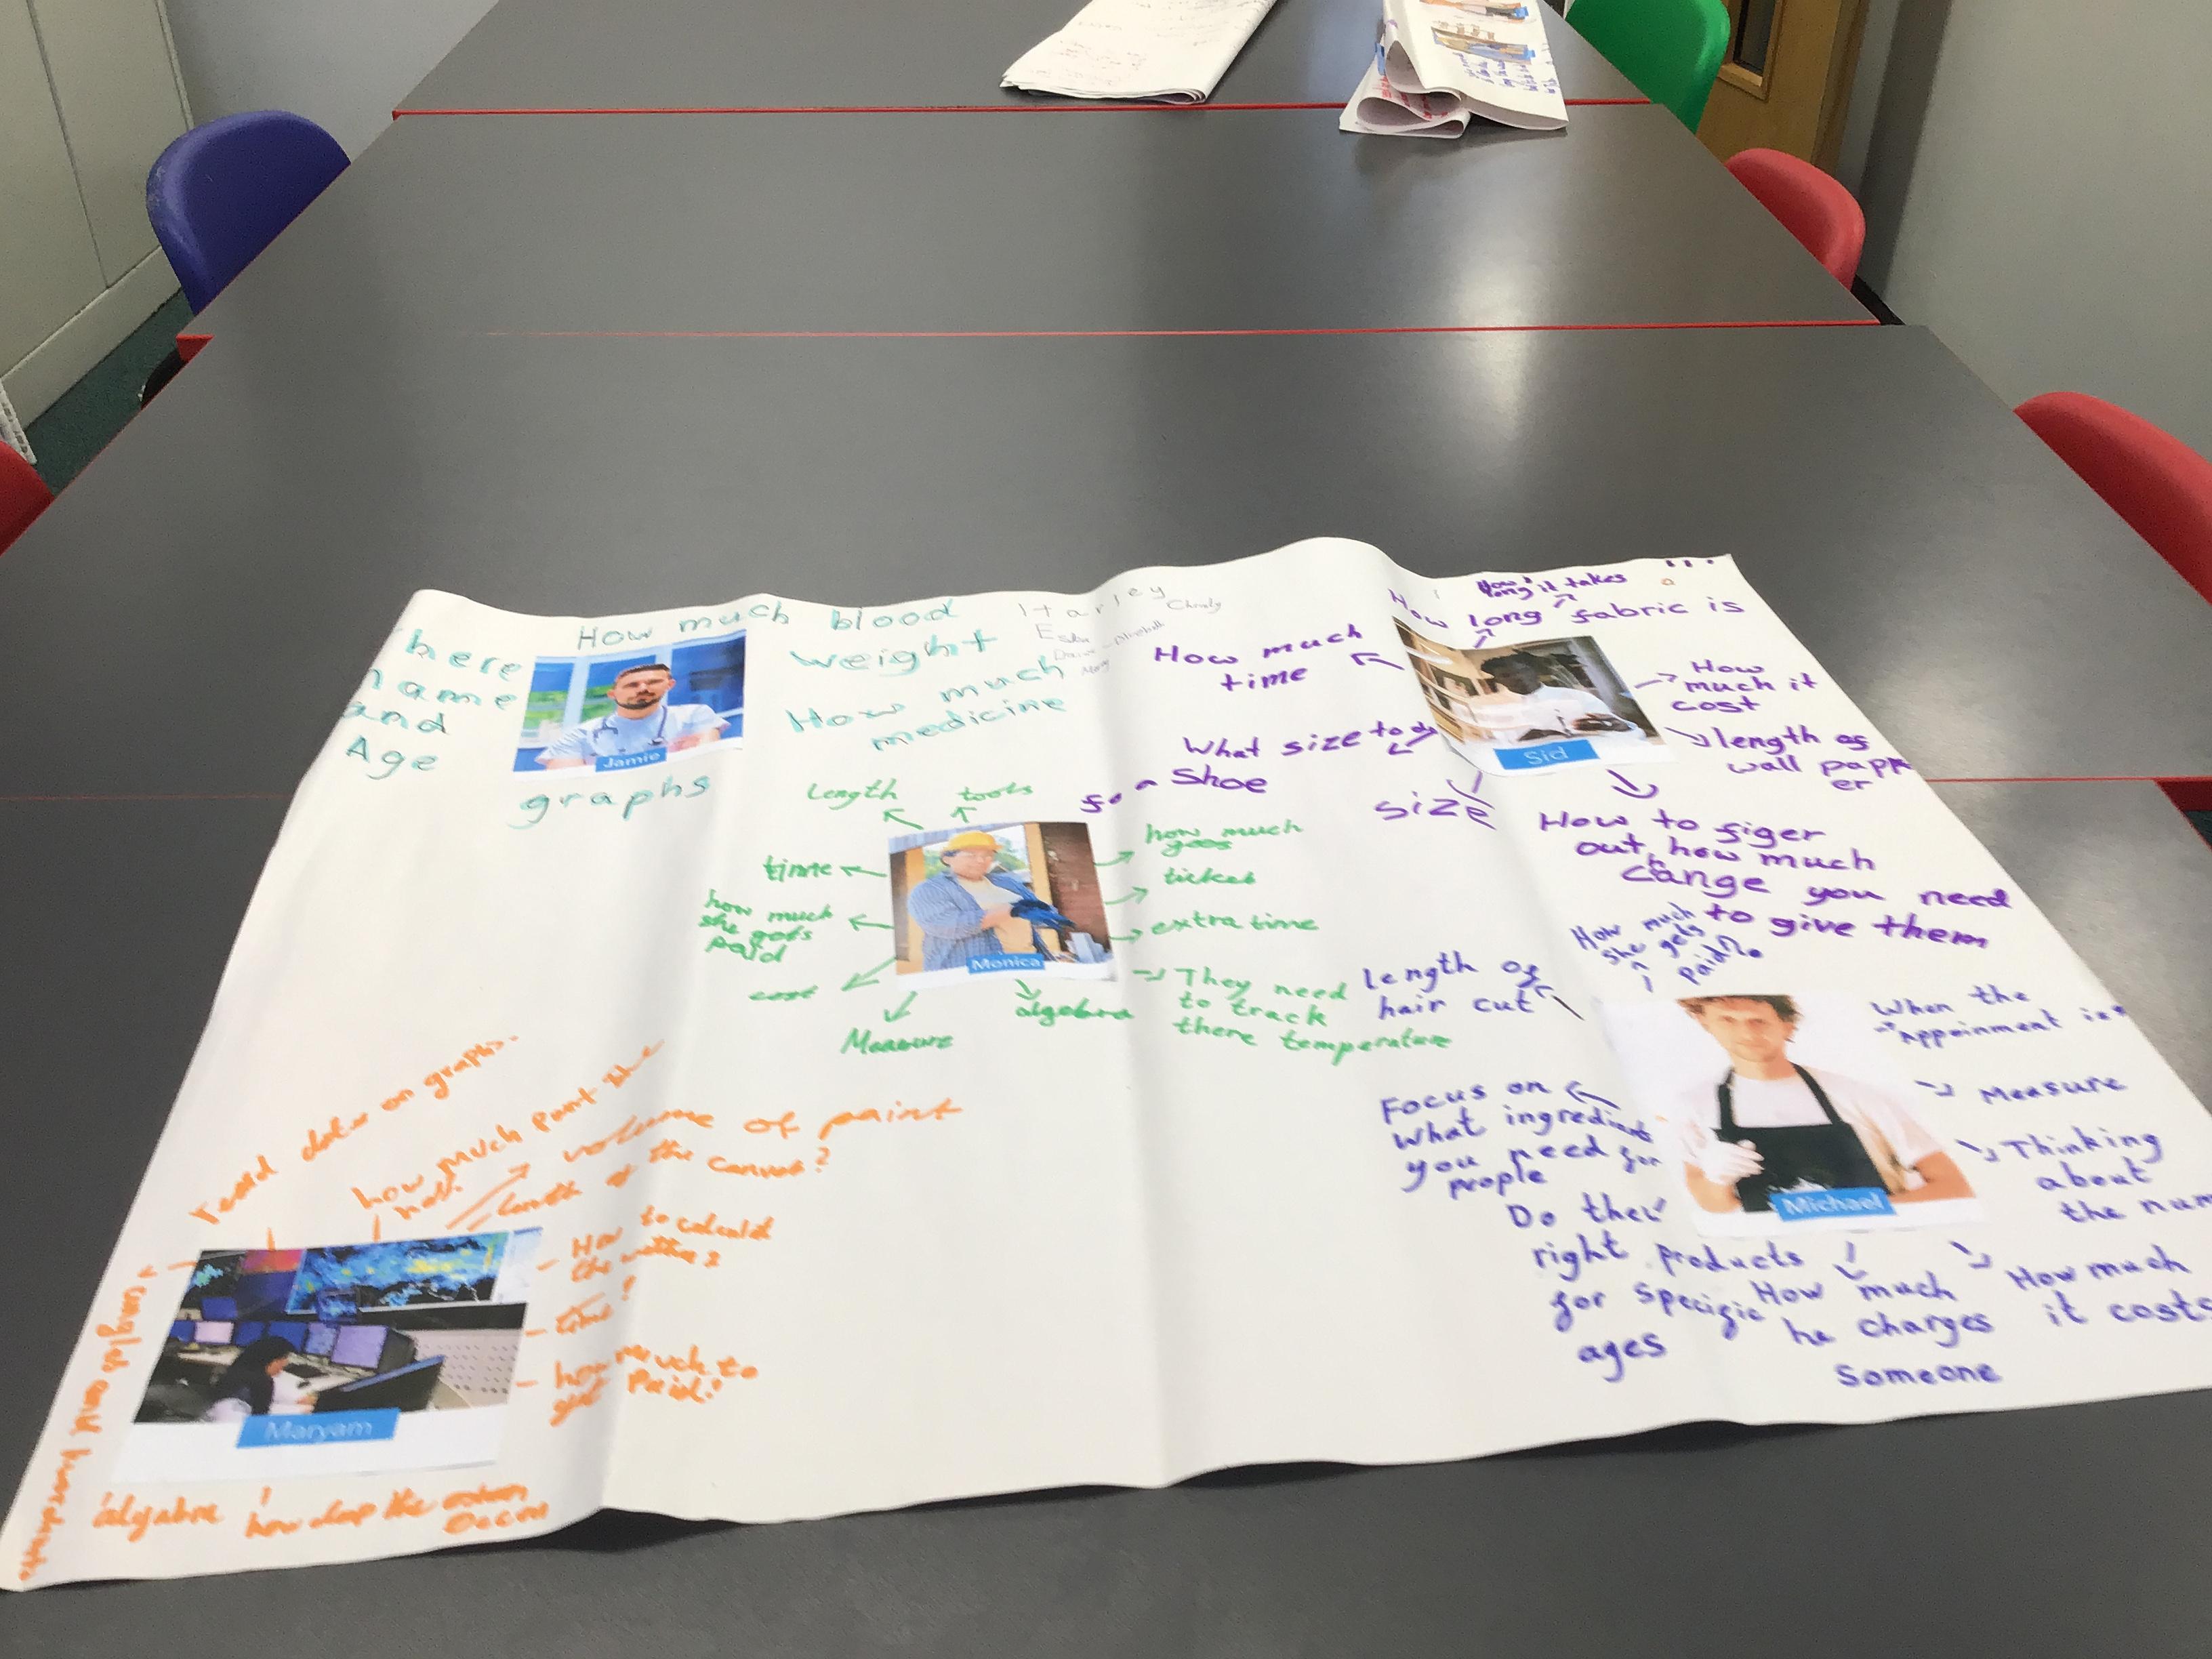 How much blood
there
name
and
Age
weight
How much
medicine
Jamie
graphs
Harley
How
long it takes
How long fabric is
How much
time
How
much it
cost
What size to do
for a Shoe
length of
wall papp
er
Sid
size
How to figer
out how much
change you need
to give them
length
tools
time
how much
she gets
paid
cost
Measure
algebra
how much
goes
ticket
extra time
They need
to track
there temperature
Monica
How much
she gets
paid?
length of
hair cut
When the
appoinment is
Measure
Thinking
about
the num
Focus on
What ingredients
you need for
people
Michael
Do their
right products
for specific
ages
How much
he charges
someone
How much
it costs
read data on graphs
how much paint the
volume of paint
length of the canvas?
How to calculat
time!
how much to
get Paid!
Maryam
algabra
how deap the